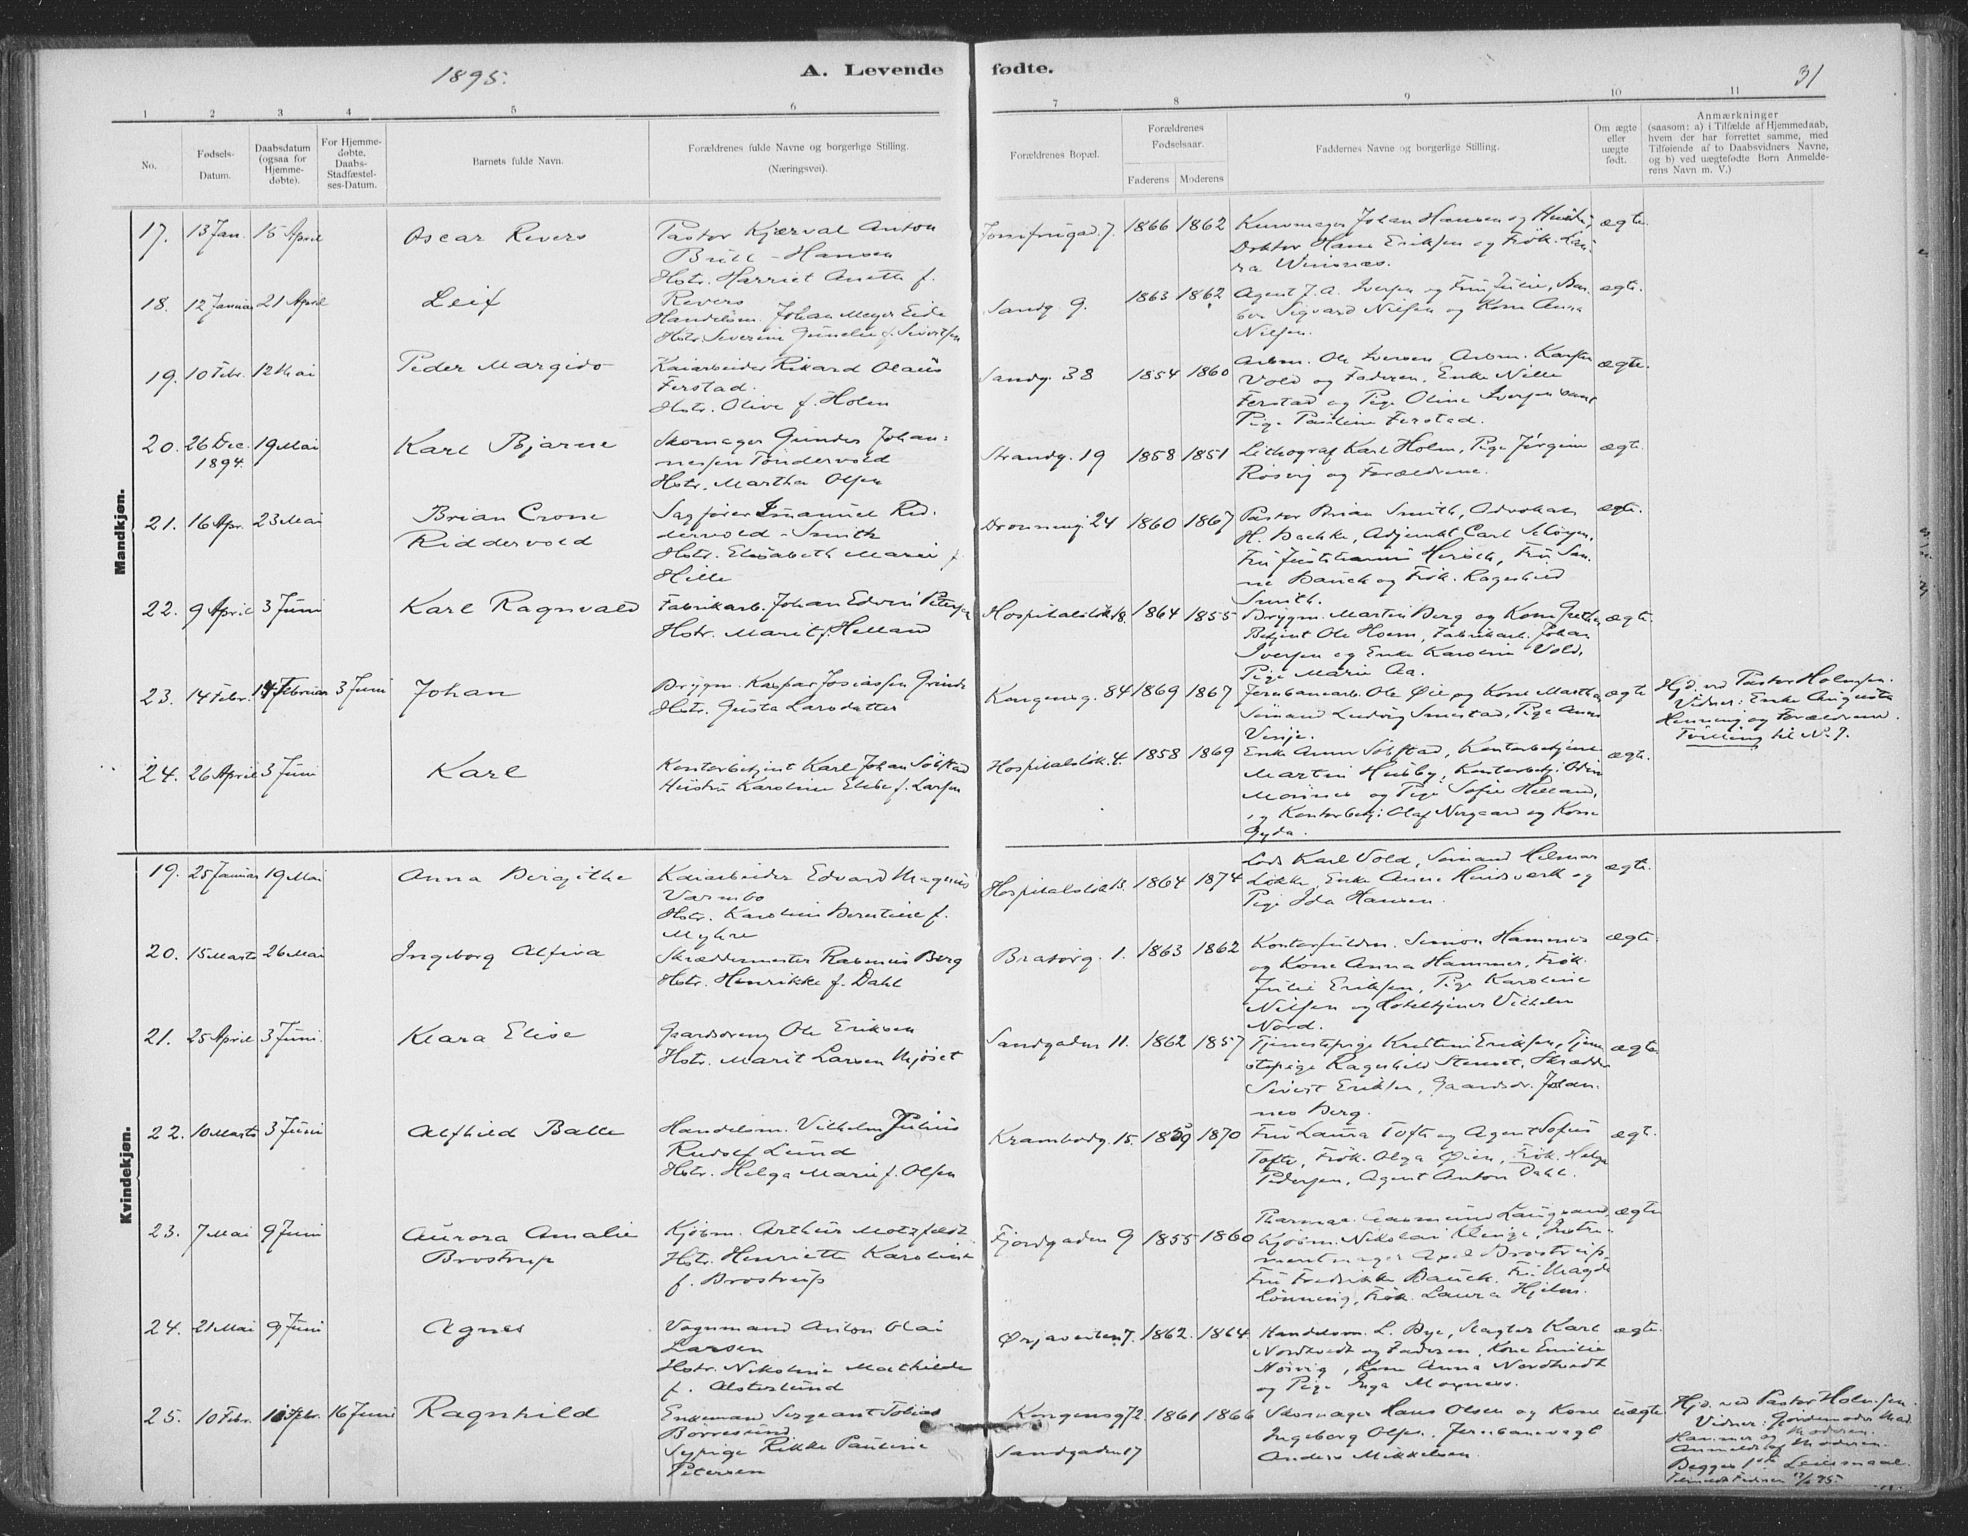 1895.
A. Levende fødte.
31
1 2 3 4 5 6 7 8 9 10 11
No.
Fødsels-Datum.
Daabsdatum (ogsaa for Hjemme-døbte).
For Hjemme-døbte, Daabs-Stadfæstel-ses-Datum.
Barnets fulde Navn.
Forældrenes fulde Navne og borgerlige Stilling.
(Næringsvei).
Forældrenes Bopæl.
Forældrenes Fødselsaar.
Faderens Moderens
Faddernes Navne og borgerlige Stilling.
Om ægte eller uægte født.
Anmærkninger
(saasom: a) i Tilfælde af Hjemmedaab,
hvem der har forrettet samme, med
Tilføiende af to Daabsvidners Navne,
og b) ved uægtefødte Børn Anmelde-
rens Navn m. V.)
Mandkjøn.
17. 13 Jan. 15 April Oscar Revers Pastor Kjærval Anton
Britt-Hansen
Hstr. Harriet Anette f.
Revers
Jomfrugad. 7. 1866 1862 Johan Hansen og Hustru,
Doktor Hans Eriksen og Frøk. Lau-
ra
ægte.
18. 12 Januar 21 April Leif Handelsm. Johan Meyer Eide
Hstr. Severine Gunelie f. Sivertsen
Sandg 9. 1863 1862 Agent J. A. Iversen og Fru Julie,
Sigvard Nilsen og Kone Anna
Nilsen.
ægte.
19. 10 Febr. 12 Mai Peder Margido Kaiarbeider Rikard Olaus
Ferstad.
Hstr. Olive f. Holm
Sandg. 38 1854 1860 Arbm. Ole Iversen, Arbm. Karsten
Vold og Faderen, Enke Nille
Ferstad og Pige Oline Iversen samt
Pige Pauline Ferstad.
ægte.
20. 26 Dec. 1894. 19 Mai Karl Bjarne Skomager Gunder Johan-
nessen Tøndervold
Hstr. Martha Olsen
Strandg. 19 1858 1851 Lithograf Karl Holm, Pige Jørgine
Røsvig og Forældrene.
ægte.
21. 16 Apr. 23 Mai Brian Crone
Riddervold
Sagfører Imanuel Rid-
dervold-Smith
Hstr. Elisabeth Marie f.
Hille
Dronning. 24 1860 1867 Pastor Brian Smith, Advokat
H. Bachke, Adjunkt Carl Schøyen,
Fru Justitiarius Hirsch, Fru
Bauck og Frøk. Ragnhild
Smith.
ægte.
22. 9 April 3 Juni Karl Ragnvald Fabrikarb. Johan Edvin Petersen
Hstr. Marit f. Helland
Hospitalsløk. 18. 1864 1855 Brygm. Martin Berg og Kone Grethe,
Betjent Ole Hoem, Fabrikarb. Johan
Iversen og Enke Karoline Vold,
Pige Marie Aa.
ægte.
23. 14 Febr. 14 Februar 3 Juni Johan Brygm. Kaspar Josiassen
Hstr. Gusta Larsdatter
Kongensg. 84 1869 1867 Jernbanearb. Ole Øie og Kone Martha,
Sømand Ludvig Smestad, Pige Anna
ægte
Hjd. ved Pastor Holmsen.
Vidner: Enke Augusta
Henning og Forældrene.
Tvilling til No 7.
24. 26 April 3 Juni Karl Kontorbetjent Karl Johan Søbstad
Hustru Karoline Elise f. Larsen
Hospitalsløk. 4. 1858 1869 Enke Anne Søbstad, Kontorbetjent
Martin Husby, Kontorbetj. Odin
og Pige Sofie Helland,
og Kontorbetj. Olaf Norgaard og Kone
Gyda.
ægte.
Kvindekjøn.
19. 25 Januar 19 Mai Anna Birgithe Kaiarbeider Edvard Magnus
Varmbo
Hstr. Karoline Berntine f.
Myhre
Hospitalsløk 13. 1864 1874 Lods Karl Vold, Sømand Hilmar
Løkke, Enke Anne og
Pige Ida Hansen.
ægte.
20. 15 Marts 26 Mai Ingeborg Alfiva Skræddermester Rasmus Berg
Hstr. Henrikke f. Dahl
Bratørg. 1. 1863 1862 Kontorfuldm. Simon Hammer
og Kone Anna Hammer, Frøk.
Julie Eriksen, Pige Karoline
Nilsen og Hoteltjener Vilhelm
Nord.
ægte.
21. 25 April 3 Juni. Klara Elise Gaardsdreng Ole Eriksen
Hstr. Marit Larsen Mjøset
Sandgaden 11. 1862 1857 Tjenestepige Kristine Eriksen, Tjene-
stepige Ragnhild Stenset, Skrædder
Sivert Eriksen, Gaardsdr. Johan-
nes Berg.
ægte.
22. 10 Marts 3 Juni Alfhild Balle Handelsm. Vilhelm Julius
Rudolf Lund
Hstr. Helga Marie f. Olsen
Krambodg. 15. 1859 1870 Fru Laura Tofte og Agent Sofus
Tofte, Frøk. Olga Øien, Frøk. Helga
Pedersen, Agent Anton Dahl.
ægt.
23. 7 Mai 9 Juni Aurora Amalie
Brostrup
Kjøbm. Arthur Motzfeldt
Hstr. Henriette Karoline
f. Brostrup
Fjordgaden 9 1855 1860 Farmac. Aasmund Laugsand
Kjøbm. Nikolai Klinge, Instru-
mentmager Axel Brostrup,
Fru Fredrikke Bauck, Fru Magda
Lønning, Frøk. Laura Hjelm.
ægte
24. 21 Mai 9 Juni Agnes Vognmand Anton Olai
Larsen
Hstr. Nikoline Mathilde
f. Alsterlund
Ørjaveiten 7. 1862. 1864. Handelsm. L. Bye, Slagter Karl
Nordtvedt og Faderen, Kone Emilie
Høivig, Kone Anna Nordtvedt
og Pige Inga Moxness.
ægte.
25. 10 Febr. 10 Febr. 16 Juni Ragnhild Enkemand Sergeant Tobias
Borresund
Sypige Rikke Pauline
Petersen
Kongensg 72.
Sandgaden 17
1861 1866 Skomager Hans Olsen og Kone
Ingeborg Olsen, Jernbanevagt
Anders Mikkelsen
uægte
Hjd. ved Pastor Holmsen.
Vidner: Gjordemoder Mad.
Hammer og Moderen.
Anmeldt af Moderen.
Begges 1ste Leiermaal.